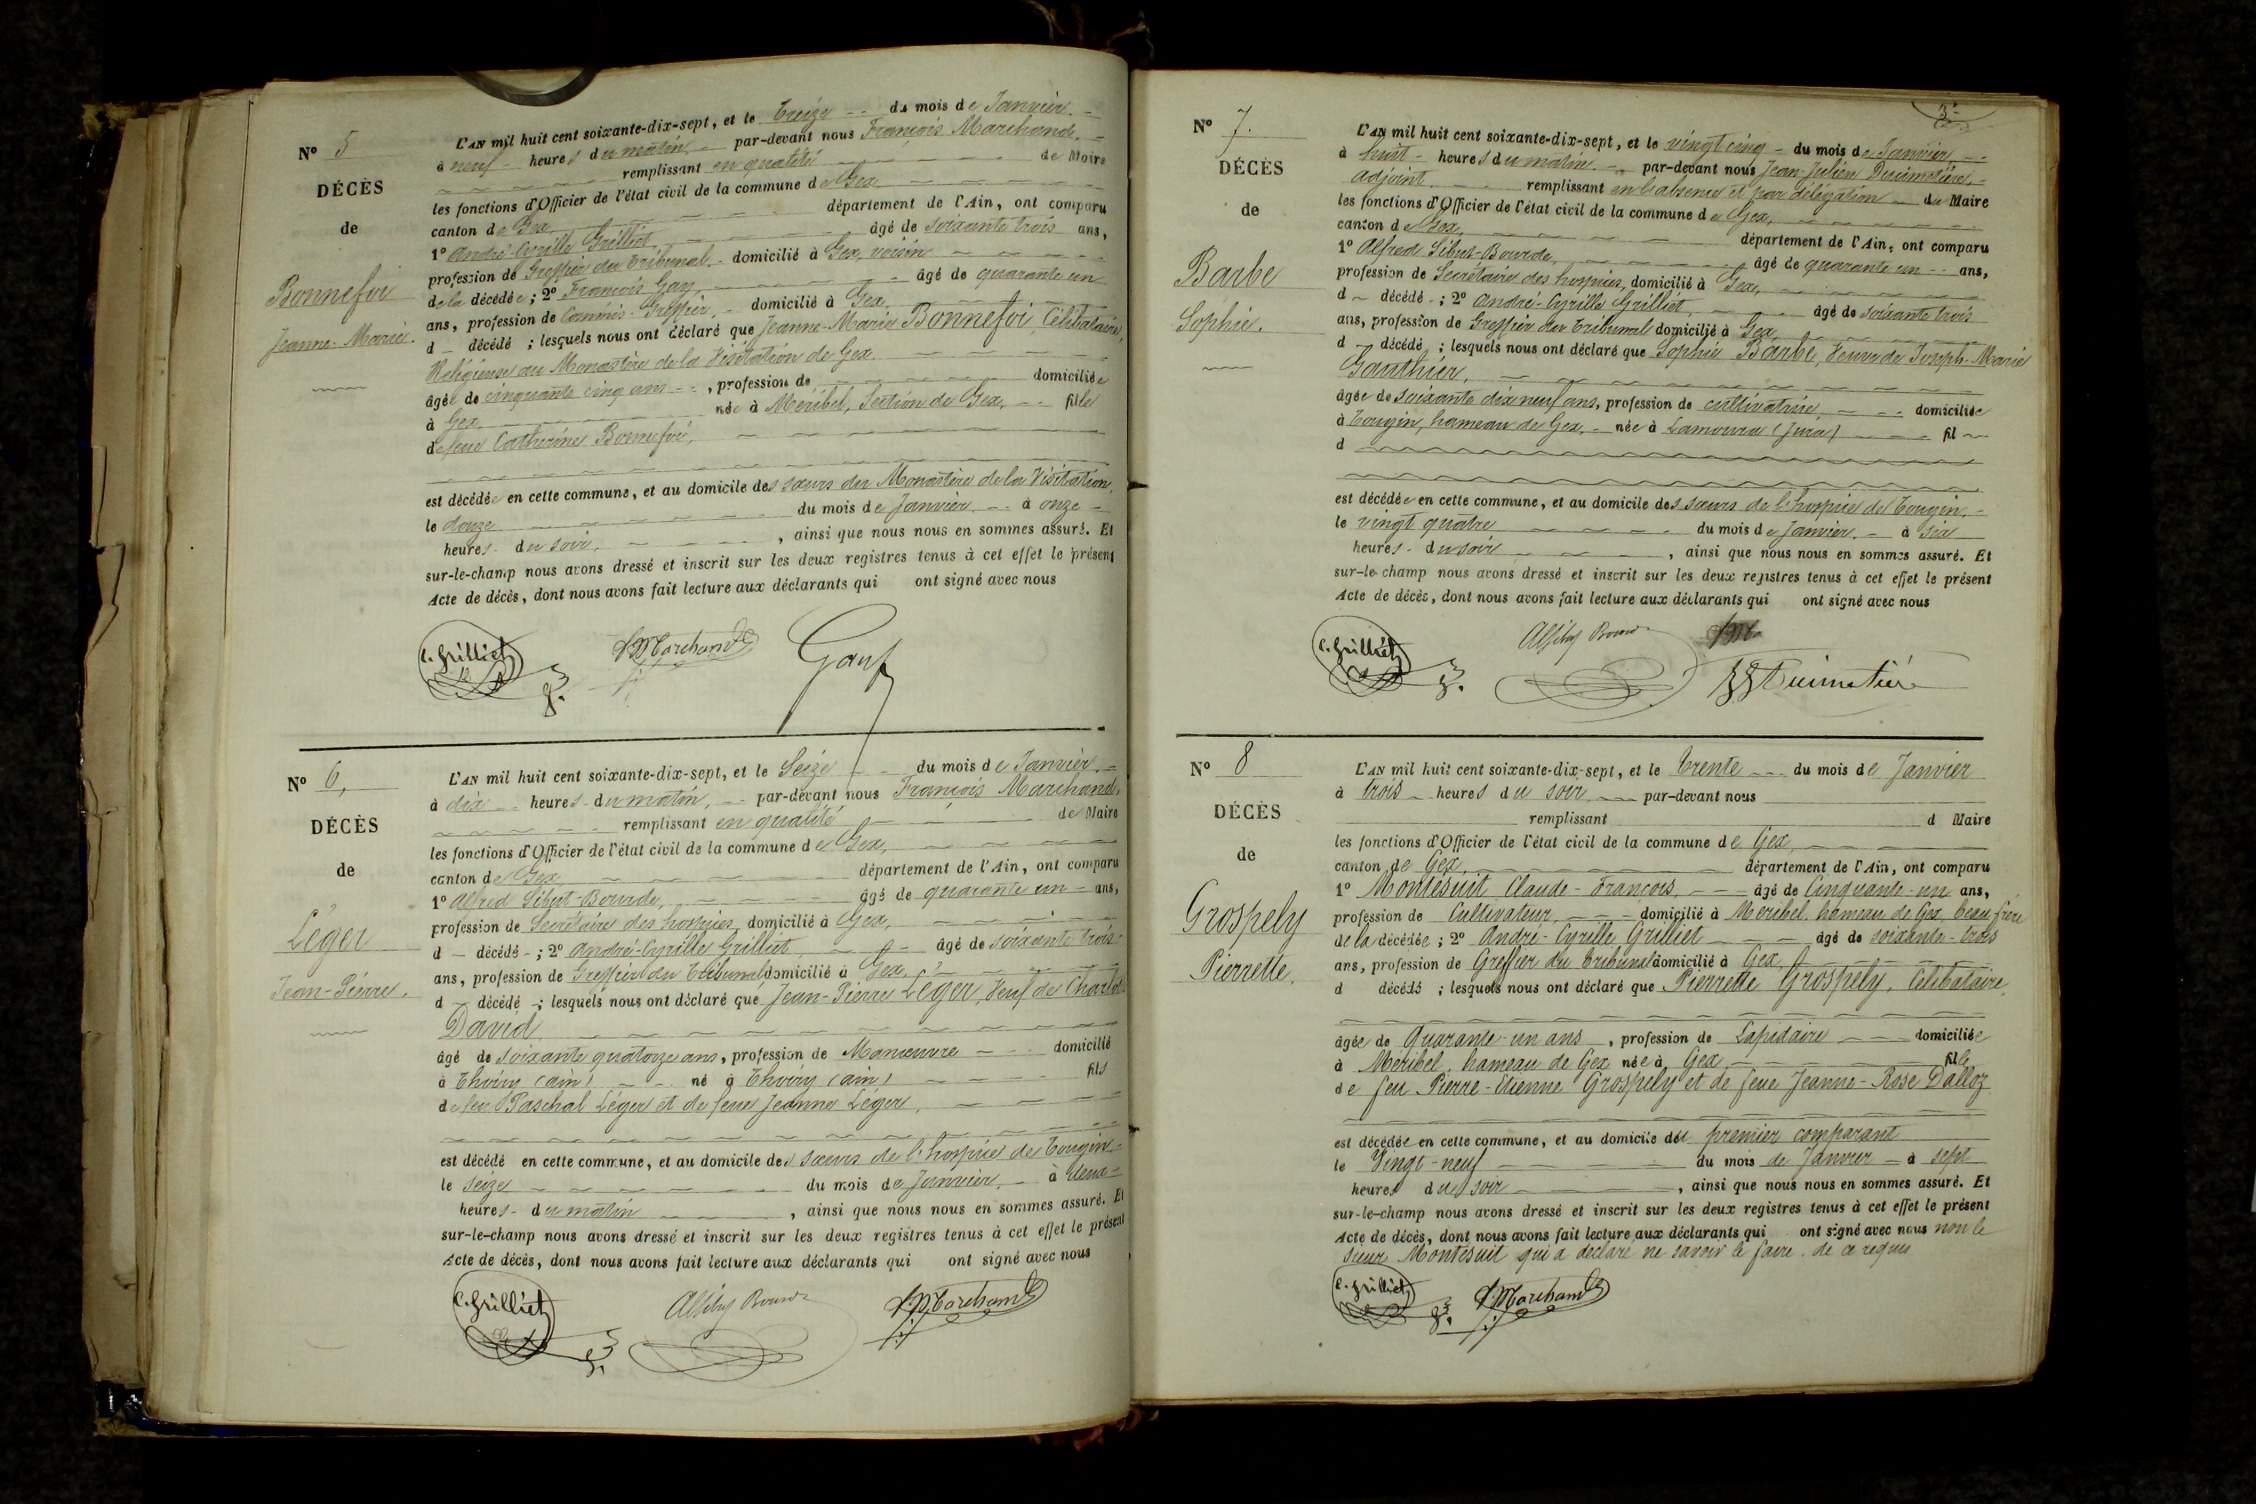 N° 5
DÉCÈS
de
Bonnefoi
Jeanne-Marie.
L'AN mil huit cent soixante-dix-sept, et le treize du mois de Janvier.
à neuf heures du matin par-devant nous François Marchand.
remplissant en qualité de Maire
les fonctions d'Officier de l'état civil de la commune de Gex
canton de Gex, département de l'Ain, ont comparu
1° André-Cyrille Grilliet, âgé de soixante trois ans,
profession de Greffier du Tribunal. domicilié à Gex, voisin
de la décédée ; 2° François Gay, âgé de quarante un
ans, profession de Commis-Greffier, domicilié à Gex,
d décédé ; lesquels nous ont déclaré que Jeanne-Marie Bonnefoi, Célibataire,
Religieuse au Monastère de la Visitation de Gex
âgée de cinquante cinq ans, profession de domiciliée
à Gex née à Meribel, Section de Gex, fille
de feue Catherine Bonnefoi,
est décédée en cette commune, et au domicile des sœurs du Monastère de la Visitation,
le douze du mois de Janvier à onze
heures du soir, ainsi que nous nous en sommes assuré. Et
sur-le-champ nous avons dressé et inscrit sur les deux registres tenus à cet effet le présent
Acte de décès, dont nous avons fait lecture aux déclarants qui ont signé avec nous
C. Grilliet F. Marchand Gay
N° 6,
DÉCÈS
de
Léger
Jean-Pierre.
L'AN mil huit cent soixante-dix-sept, et le Seize du mois de Janvier.
à dix heures du matin, par-devant nous François Marchand,
remplissant en qualité de Maire
les fonctions d'Officier de l'état civil de la commune de Gex,
canton de Gex département de l'Ain, ont comparu
1° Alfred Sibut-Bourde, âgé de quarante un ans,
profession de Secrétaire des hospices, domicilié à Gex,
d décédé ; 2° André-Cyrille Grilliet âgé de soixante trois
ans, profession de Greffier du Tribunal domicilié à Gex
d décédé ; lesquels nous ont déclaré que Jean-Pierre Léger, Veuf de Charlotte
David
âgé de soixante quatorze ans, profession de Manœuvre domicilié
à Thoiry (ain) né à Thoiry (ain) fils
de feu Paschal Léger et de feue Jeanne Léger,
est décédé en cette commune, et au domicile des sœurs de l'hospice de Tougin
le seize du mois de Janvier, à deux
heures du matin, ainsi que nous nous en sommes assuré. Et
sur-le-champ nous avons dressé et inscrit sur les deux registres tenus à cet effet le présent
Acte de décès, dont nous avons fait lecture aux déclarants qui ont signé avec nous
C. Grilliet F. Marchand
3
N° 7.
DÉCÈS
de
Barbe
Sophie.
L'AN mil huit cent soixante-dix-sept, et le vingt cinq du mois de Janvier,
à huit heures du matin par-devant nous Jean-Julien Ducimetière,
adjoint remplissant en l'absence et par délégation du Maire
les fonctions d'Officier de l'état civil de la commune de Gex,
canton de Gex, département de l'Ain, ont comparu
1° Alfred Sibut-Bourde, âgé de quarante un ans,
profession de Secrétaire des hospices, domicilié à Gex,
d décédé ; 2° André-Cyrille Grilliet, âgé de soixante trois
ans, profession de Greffier du Tribunal domicilié à Gex
d décédé ; lesquels nous ont déclaré que Sophie Barbe, Veuve de Joseph-Marie
Gauthier,
âgée de soixante dix neuf ans, profession de cultivatrice domiciliée
à Tougin, hameau de Gex. née à Lamoura (Jura) fil
d
est décédée en cette commune, et au domicile des sœurs de l'hospice de Tougin,
le vingt quatre du mois de Janvier. à six
heures du soir, ainsi que nous nous en sommes assuré. Et
sur-le-champ nous avons dressé et inscrit sur les deux registres tenus à cet effet le présent
Acte de décès, dont nous avons fait lecture aux déclarants qui ont signé avec nous
C. Grilliet
N° 8
DÉCÈS
de
Grospely
Pierrette.
L'AN mil huit cent soixante-dix-sept, et le trente du mois de Janvier
à trois heures du soir par-devant nous
remplissant d Maire
les fonctions d'Officier de l'état civil de la commune de Gex
canton de Gex, département de l'Ain, ont comparu
1° Montésuit Claude-François, âgé de Cinquante-un ans,
profession de Cultivateur domicilié à Meribel, hameau de Gex, beau frère
de la décédée ; 2° André-Cyrille Grilliet âgé de soixante-trois
ans, profession de Greffier du tribunal domicilié à Gex,
d décédé ; lesquels nous ont déclaré que Pierrette Grospely, Célibataire,
âgée de Quarante-un ans, profession de Lapidaire domiciliée
à Meribel, hameau de Gex née à Gex fille
de feu Pierre-Etienne Grospely et de feue Jeanne-Rose Dalloz
est décédée en cette commune, et au domicile du premier comparant
le Vingt-neuf du mois de Janvier à sept
heures du soir, ainsi que nous nous en sommes assuré. Et
sur-le-champ nous avons dressé et inscrit sur les deux registres tenus à cet effet le présent
Acte de décès, dont nous avons fait lecture aux déclarants qui ont signé avec nous non le
sieur Montésuit qui a déclaré ne savoir le faire. de ce requis
C. Grilliet F. Marchand